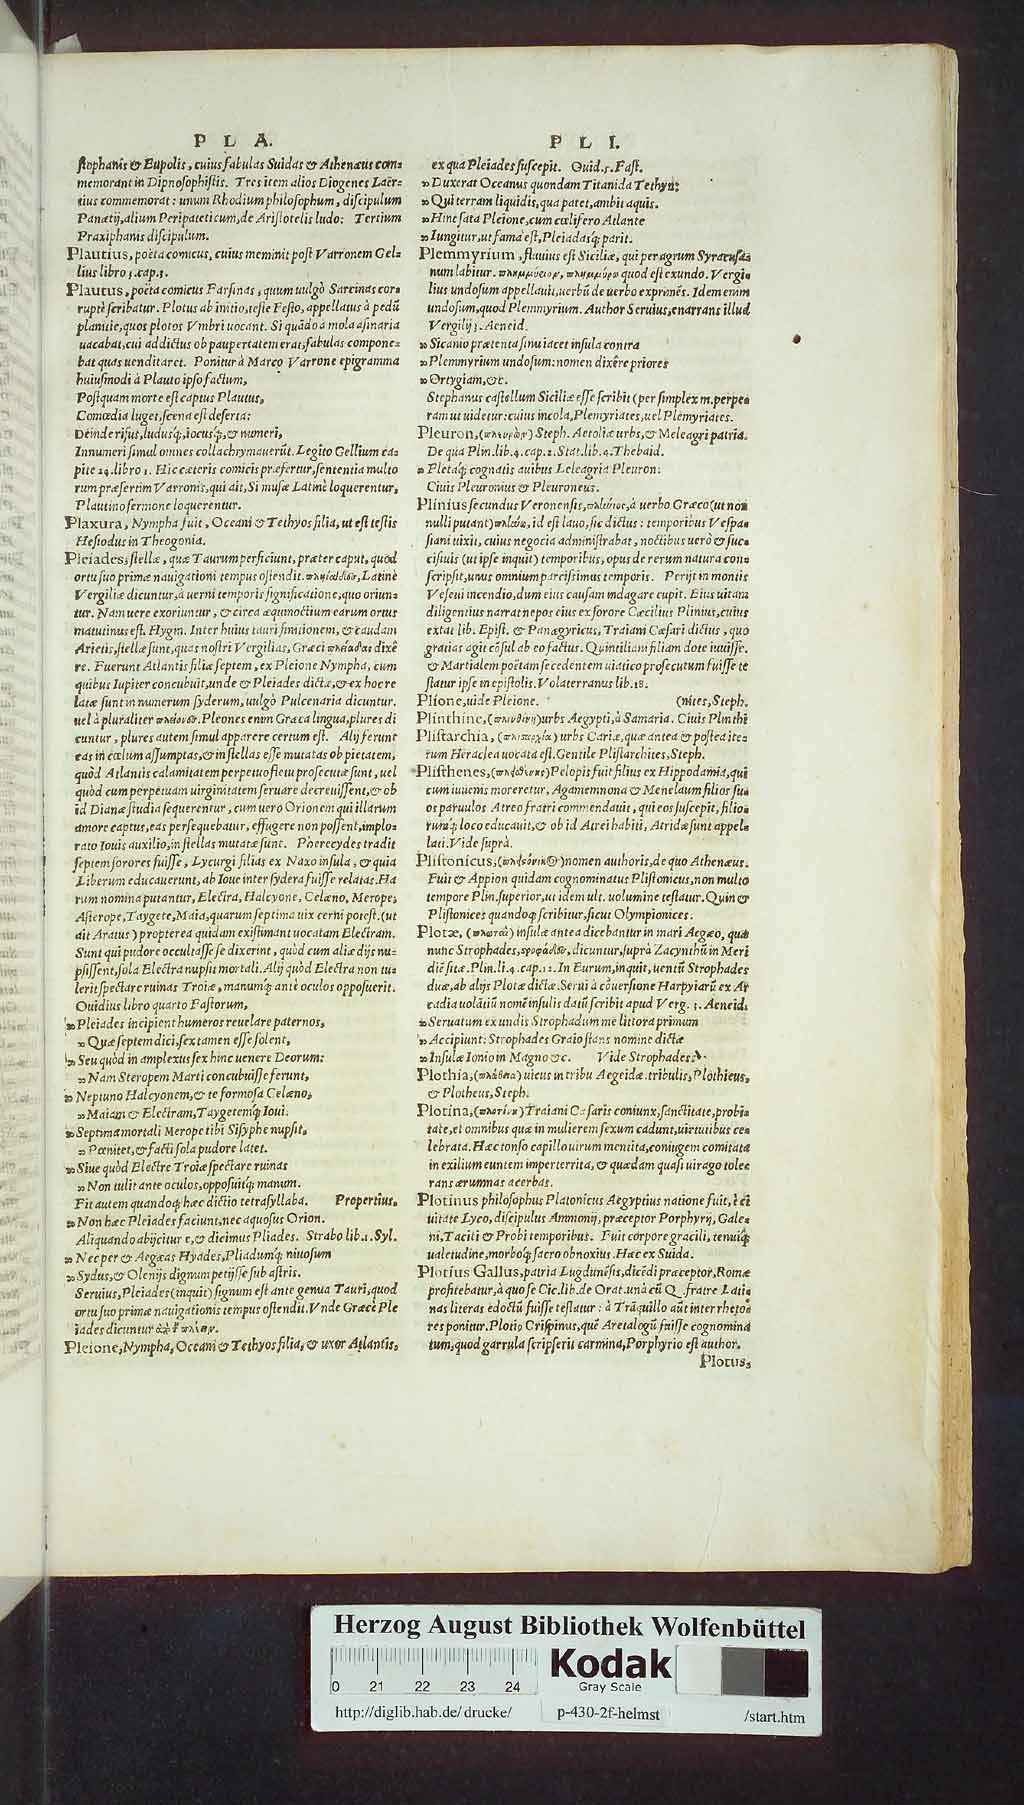 P L A.
stophanis & Eupolis, cuius fabulas Suidas & Athenæus com=
memorant in Dipnosophistis. Tres item alios Diogenes Laër=
tius commemorat: unum Rhodium philosophum, discipulum
Panætij, alium Peripateticum, de Aristotelis ludo: Tertium
Praxiphanis discipulum.
Plautius, poëta comicus, cuius meminit post Varronem Gel=
lius libro 3. cap. 3.
Plautus, poëta comicus Farsinas, quum uulgò Sarcinas cor=
ruptè scribatur. Plotus ab initio, teste Festo, appellatus à pedū
planitie, quos plotos Vmbri uocant. Si quādo à mola asinaria
uacabat, cui addictus ob paupertatem erat, fabulas compone=
bat quas uenditaret. Ponitur à Marco Varrone epigramma
huiusmodi à Plauto ipso factum,
Postquam morte est captus Plautus,
Comœdia luget, scena est deserta:
Deinde risus, ludusq́;, iocusq́;, & numeri,
Innumeri simul omnes collachrymauerūt. Legito Gellium ca=
pite 24. libro 1. Hic cæteris comicis præfertur, sententia multo
rum præsertim Varronis, qui ait, Si musæ Latinè loquerentur,
Plautino sermone loquerentur.
Plaxura, Nympha fuit, Oceani & Tethyos filia, ut est testis
Hesiodus in Theogonia.
Pleiades, stellæ, quæ Taurum perficiunt, præter caput, quod
ortu suo primæ nauigationi tempus ostendit. πληϊάδες, Latinè
Vergiliæ dicuntur, à uerni temporis significatione, quo oriun=
tur. Nam uere exoriuntur, & circa æquinoctium earum ortus
matutinus est. Hygin. Inter huius tauri finitionem, & caudam
Arietis, stellæ sunt, quas nostri Vergilias, Græci πλειάδας dixê
re. Fuerunt Atlantis filiæ septem, ex Pleione Nympha, cum
quibus Iupiter concubuit, unde & Pleiades dictæ, & ex hoc re
latæ sunt in numerum syderum, uulgò Pulcenaria dicuntur.
uel à pluraliter πλείονες. Pleones enim Græca lingua, plures di
cuntur, plures autem simul apparere certum est. Alij ferunt
eas in cœlum assumptas, & in stellas esse mutatas ob pietatem,
quòd Atlantis calamitatem perpetuo fletu prosecutæ sunt, uel
quòd cum perpetuam uirginitatem seruare decreuissent, & ob
id Dianæ studia sequerentur, cum uero Orionem qui illarum
amore captus, eas persequebatur, effugere non possent, implo=
rato Iouis auxilio, in stellas mutatæ sunt. Pherecydes tradit
septem sorores fuisse, Lycurgi filias ex Naxo insula, & quia
Liberum educauerunt, ab Ioue inter sydera fuisse relatas. Ha
rum nomina putantur, Electra, Halcyone, Celæno, Merope,
Asterope, Taygete, Maia, quarum septima uix cerni potest. (ut
ait Aratus) propterea quidam existimant uocatam Electram.
Sunt qui pudore occultasse se dixerint, quòd cum aliæ dijs nu=
psissent, sola Electra nupsit mortali. Alij quòd Electra non tu=
lerit spectare ruinas Troiæ, manumq́; ante oculos opposuerit.
Ouidius libro quarto Fastorum,
Pleiades incipient humeros reuelare paternos,
Quæ septem dici, sex tamen esse solent,
Seu quòd in amplexus sex hinc uenere Deorum:
Nam Steropem Marti concubuisse ferunt,
Neptuno Halcyonem, & te formosa Celæno,
Maiam & Electram, Taygetemq́; Ioui.
Septima mortali Merope tibi Sisyphe nupsit,
Pœnitet, & facti sola pudore latet.
Siue quòd Electre Troiæ spectare ruinas
Non tulit ante oculos, opposuitq́; manum.
Fit autem quandoq; hæc dictio tetrasyllaba. Propertius.
Non hæc Pleiades faciunt, nec aquosus Orion.
Aliquando abijcitur e, & dicimus Pliades. Strabo lib. 1. Syl.
Nec per & Aegæas Hyades, Pliadumq́; niuosum
Sydus, & Olenijs dignum petijsse sub astris.
Seruius, Pleiades (inquit) signum est ante genua Tauri, quod
ortu suo primæ nauigationis tempus ostendit. Vnde Græcè Ple
iades dicuntur ἀπὸ τ πλεῖν.
Pleione, Nympha, Oceani & Tethyos filia, & uxor Atlantis,
P L I.
ex qua Pleiades suscepit. Ouid. 5. Fast.
Duxerat Oceanus quondam Titanida Tethyn:
Qui terram liquidis, qua patet, ambit aquis.
Hinc sata Pleione, cum cœlifero Atlante
Iungitur, ut fama est, Pleiadasq́; parit.
Plemmyrium, fluuius est Siciliæ, qui per agrum Syracusa=
num labitur. πλημμύριον, πλημμύρω quod est exundo. Vergi=
lius undosum appellauit, uerbū de uerbo exprimēs. Idem enim
undosum, quod Plemmyrium. Author Seruius, enarrans illud
Vergilij 3. Aeneid.
Sicanio prætenta sinu iacet insula contra
Plemmyrium undosum: nomen dixêre priores
Ortygiam, &c.
Stephanus castellum Siciliæ esse scribit (per simplex m. perpe=
ram ut uidetur: cuius incola, Plemyriates, uel Plemyriates.
Pleuron, (πλευρὼν) Steph. Aetoliæ urbs, & Meleagri patria.
De qua Plin. lib. 4. cap. 2. Stat. lib. 4. Thebaid.
Fletaq́; cognatis auibus Leleagria Pleuron:
Ciuis Pleuronius & Pleuroneus.
Plinius secundus Veronensis, πλίνιος, à uerbo Græco (ut non
nulli putant) πλύω, id est lauo, sic dictus: temporibus Vespa=
siani uixit, cuius negocia administrabat, noctibus uerò & suc=
cisiuis (ut ipse inquit) temporibus, opus de rerum natura con=
scripsit, unus omnium parcissimus temporis. Perijt in montis
Veseui incendio, dum eius causam indagare cupit. Eius uitam
diligentius narrat nepos eius ex sorore Cæcilius Plinius, cuius
extat lib. Epist. & Panægyricus, Traiani Cæsari dictus, quo
gratias agit cōsul ab eo factus. Quintiliani filiam dote iuuisse.
& Martialem poëtam secedentem uiatico prosecutum fuisse te
statur ipse in epistolis. Volaterranus lib. 18.
Plione, uide Pleione. (nites, Steph.
Plinthine, (πλινθίνη) urbs Aegypti, à Samaria. Ciuis Plinthi
Plistarchia, (πλισταρχία) urbs Cariæ, quæ antea & postea ite=
rum Heraclea uocata est. Gentile Plistarchites, Steph.
Plisthenes, (πλεισθένης) Pelopis fuit filius ex Hippodamia, qui
cum iuuenis moreretur, Agamemnona & Menelaum filios su=
os paruulos Atreo fratri commendauit, qui eos suscepit, filio=
rumq́; loco educauit, & ob id Atrei habiti, Atridæ sunt appel=
lati. Vide suprà.
Plistonicus, (πλειστόνικος) nomen authoris, de quo Athenæus.
Fuit & Appion quidam cognominatus Plistonicus, non multo
tempore Plin. superior, ut idem ult. uolumine testatur. Quin &
Plistonices quandoq; scribitur, sicut Olympionices.
Plotæ, (πλωταὶ) insulæ antea dicebantur in mari Aegæo, quæ
nunc Strophades, στροφάδες, dicuntur, suprà Zacynthū in Meri
diē sitæ. Plin. li. 4. cap. 12. In Eurum, inquit, uentū Strophades
duæ, ab alijs Plotæ dictæ. Serui à cōuersione Harpyiarū ex Ar
cadia uolātiū nomē insulis datū scribit apud Verg. 3. Aeneid.
Seruatum ex undis Strophadum me littora primum
Accipiunt: Strophades Graio stans nomine dictæ
Insulæ Ionio in Magno &c. Vide Strophades.
Plothia, (πλώθεια) uicus in tribu Aegeidæ. tribulis, Plothieus,
& Plotheus, Steph.
Plotina, (πλωτίνη) Traiani Cæsaris coniunx, sanctitate, probi=
tate, et omnibus quæ in mulierem sexum cadunt, uirtutibus ce=
lebrata. Hæc tonso capillo uirum mentita, coniugem comitata
in exilium euntem imperterrita, & quædam quasi uirago tole=
rans ærumnas acerbas.
Plotinus philosophus Platonicus Aegyptius natione fuit, è ci
uitate Lyco, discipulus Ammonij, præceptor Porphyrij, Gale=
ni, Taciti & Probi temporibus. Fuit corpore gracili, tenuiq́;
ualetudine, morboq́; sacro obnoxius. Hæc ex Suida.
Plotius Gallus, patria Lugdunēsis, dicēdi præceptor, Romæ
profitebatur, à quo se Cic. lib. de Orat. unà cū Q. fratre Lati=
nas literas edoctū fuisse testatur: à Trāquillo aūt inter rhetor=
res ponitur. Plotiq Crispinus, quē Aretalogū fuisse cognomina
tum, quod garrula scripserit carmina, Porphyrio est author.
Plotus,
Herzog August Bibliothek Wolfenbüttel
Kodak
Gray Scale
0 21 22 23 24
http://diglib.hab.de/drucke/ p-430-2f-helmst /start.htm